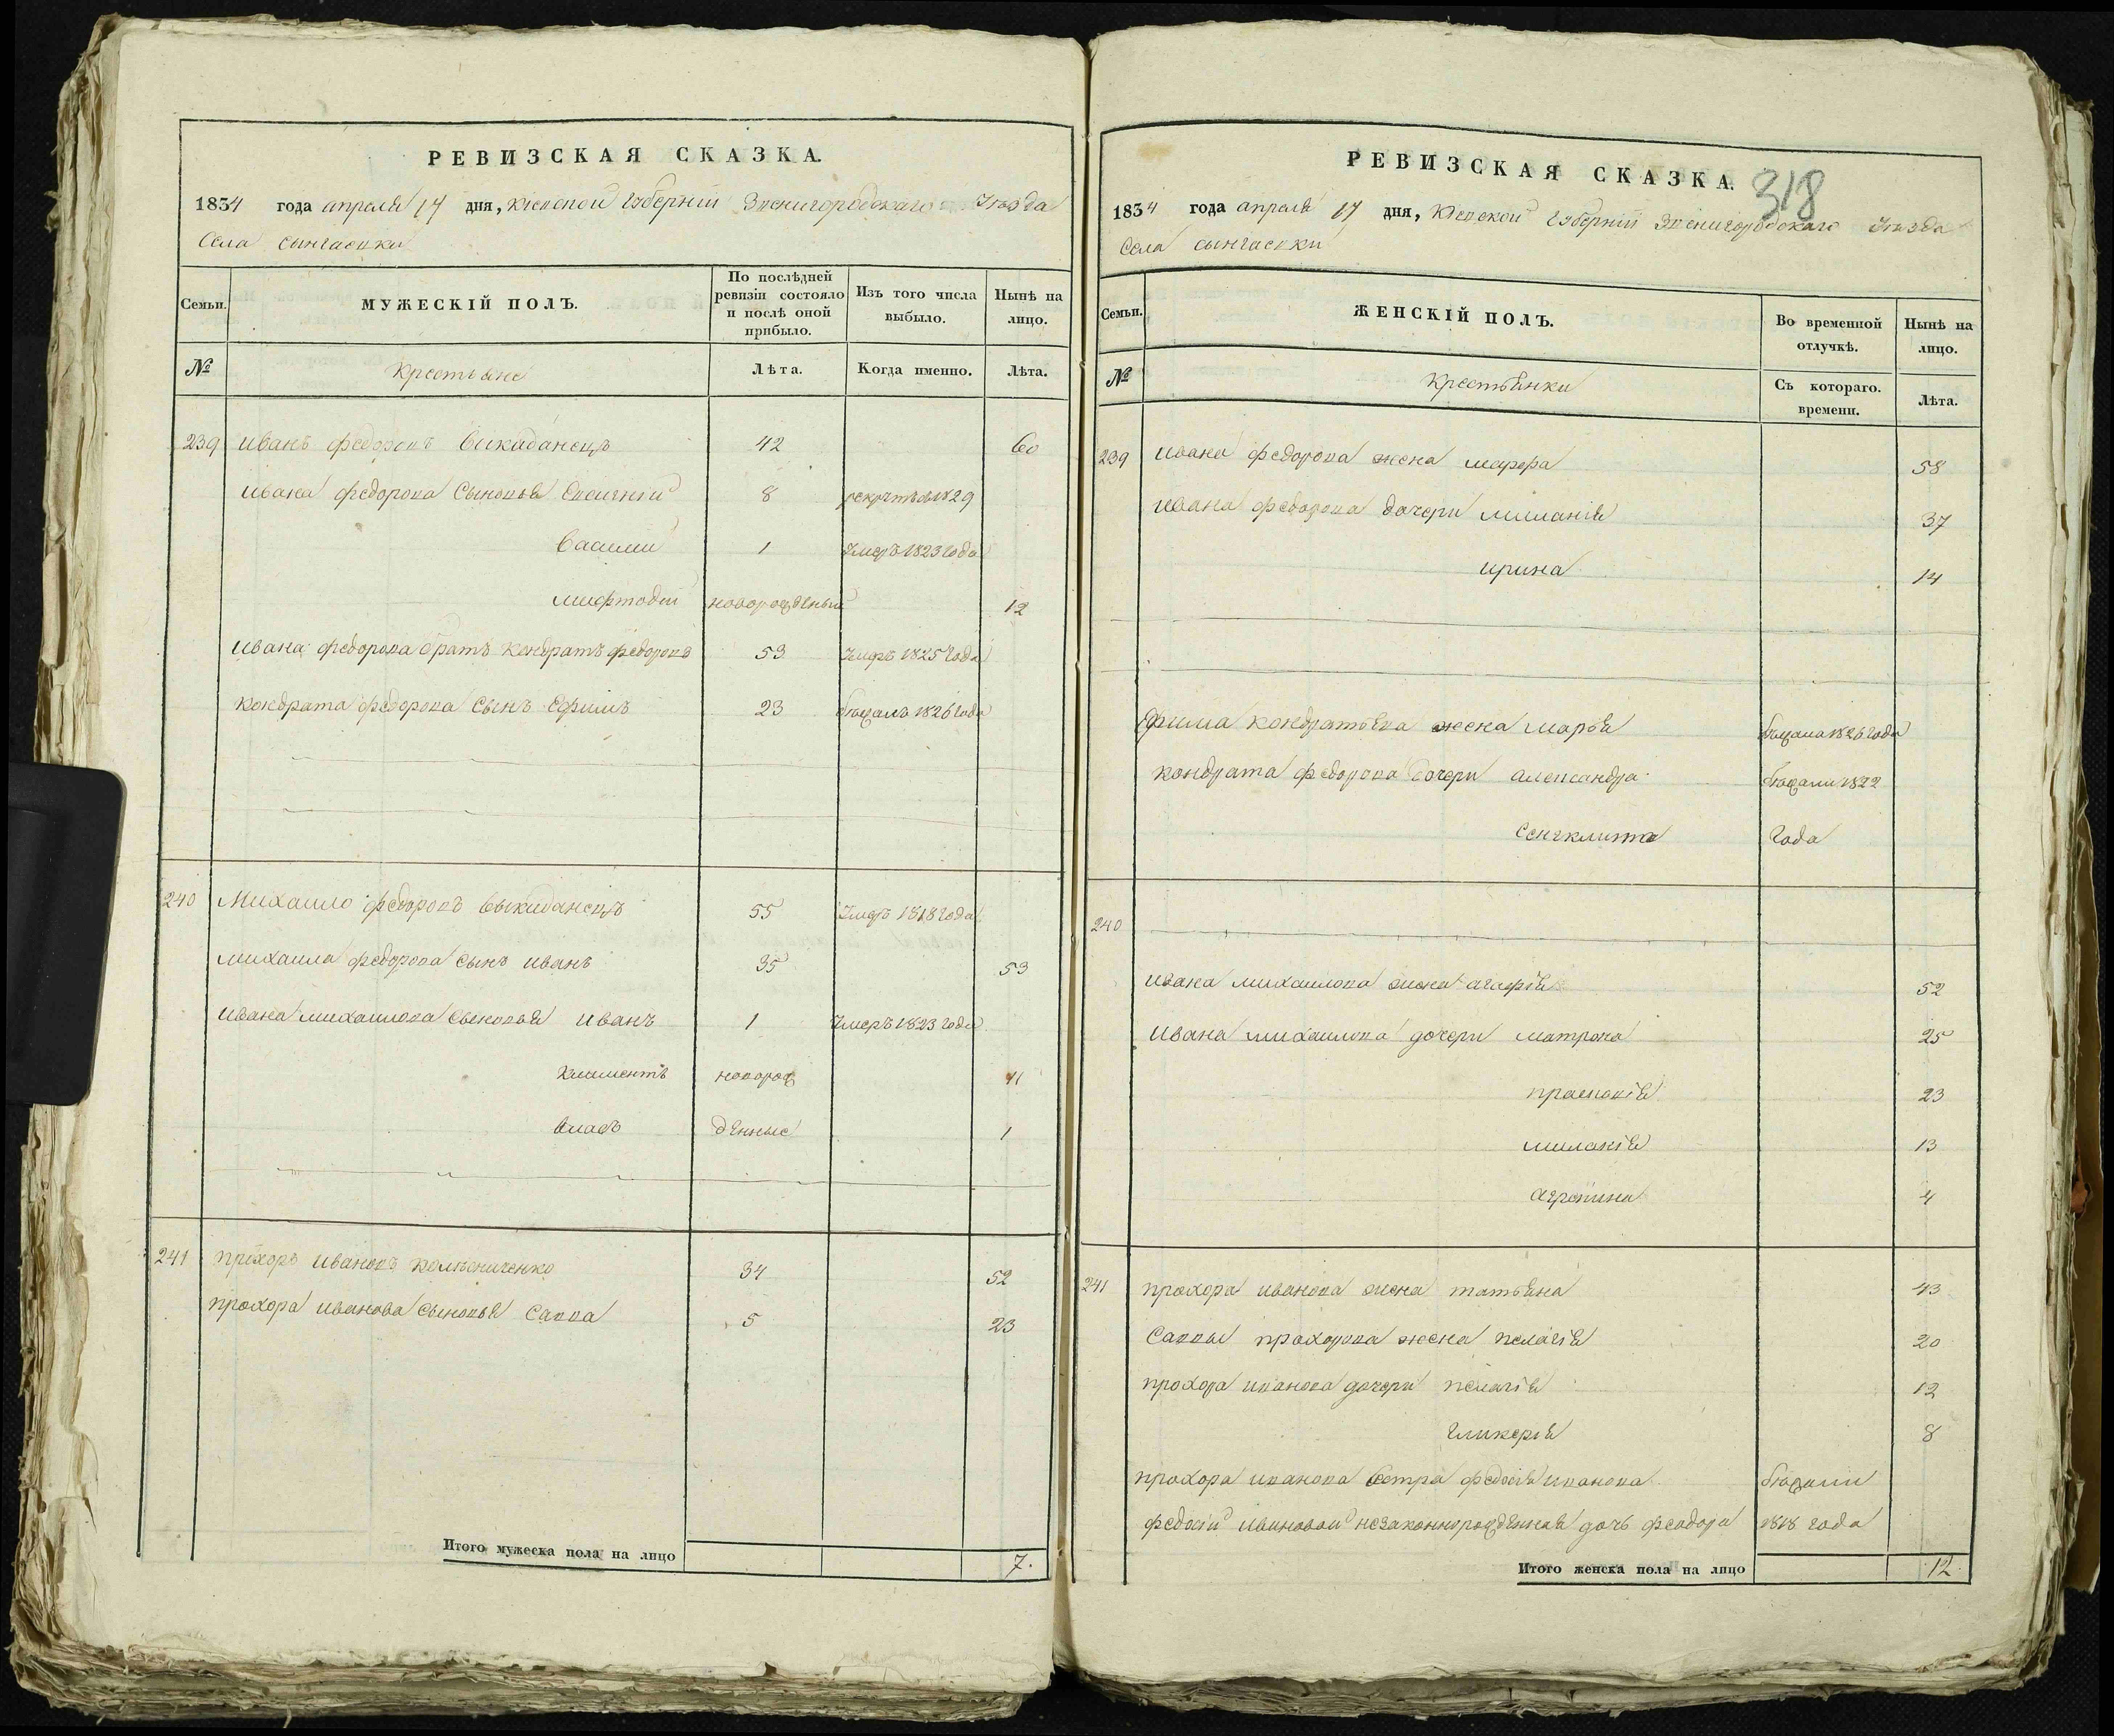 РЕВИЗСКАЯ СКАЗКА.
1834 года апреля 17 дня, Кіевской губерніи Звенигородскаго Уѣзда
Села
Семьи. МУЖЕСКІЙ ПОЛЪ. По послѣдней ревизіи состояло и послѣ оной прибыло. Изъ того числа выбыло. Нынѣ на лицо.
№ Крестьяне Лѣта. Когда именно. Лѣта.
239 Иванъ федоровъ 42 60
Ивана федорова сыновья 8 1829
Василий 1 Умеръ 1823 года
мефтодий новорожденый 12
Ивана федорова братъ кондратъ федоровъ 53 Умеръ 1825 года
кондрата федорова сынъ Ефимъ 23 бѣжалъ 1826 года
240 Михаило федоровъ 55 Умеръ 1818 года
михаила федорова сынъ иванъ 35 53
Ивана михаилова сыновья иванъ 1 Умеръ 1823 года
Климентъ новорож 11
Власъ денные 1
241 прохоръ Ивановъ колѣсниченко 34 52
прохора Иванова сыновья Савва 5 23
Итого мужеска пола на лицо 7.
РЕВИЗСКАЯ СКАЗКА.
318
1834 года апреля 17 дня, Кіевской губерніи Звенигородскаго Уѣзда
Села
Семьи. ЖЕНСКІЙ ПОЛЪ. Во временной отлучкѣ. Нынѣ на лицо.
№ Крестьянки Съ котораго. времени. Лѣта.
239 Ивана федорова жена марфа 58
Ивана федорова дочери миланія 37
ирина 14
Ефима кондратьева жена марья бѣжала 1826 года
кондрата федорова дочери александра бѣжали 1822
года
240
Ивана михаилова жена агафія 52
Ивана михаилова дочери матрона 25
прасковія 23
миланія 13
агропина 4
241 прохора иванова жена татьяна 43
Саввы прохорова жена пелагія 20
прохора иванова дочери пелагія 12
гликерія 8
прохора иванова сестра федосія иванова бѣжали
федосіи ивановой незаконнорожденная дочь феодора 1818 года
Итого женска пола на лицо 12.